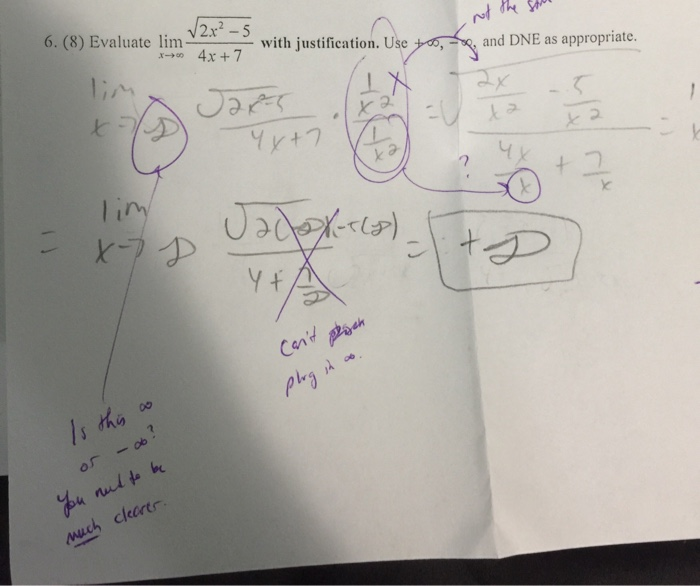 not the
6. (8) Evaluate lim x→∞ √(2x² − 5) / (4x + 7) with justification. Use +∞, −∞, and DNE as appropriate.
lim x→∞ √(2x²-5) / (4x+7) · (1/x²) / (1/x²) = √(2x/x² - 5/x²) / (4x/x + 7/x) =
x
?
= lim x→∞ / (4 + 7/∞) = +∞
Can't
plug in ∞.
Is this ∞
or -∞?
You need to be
much clearer.